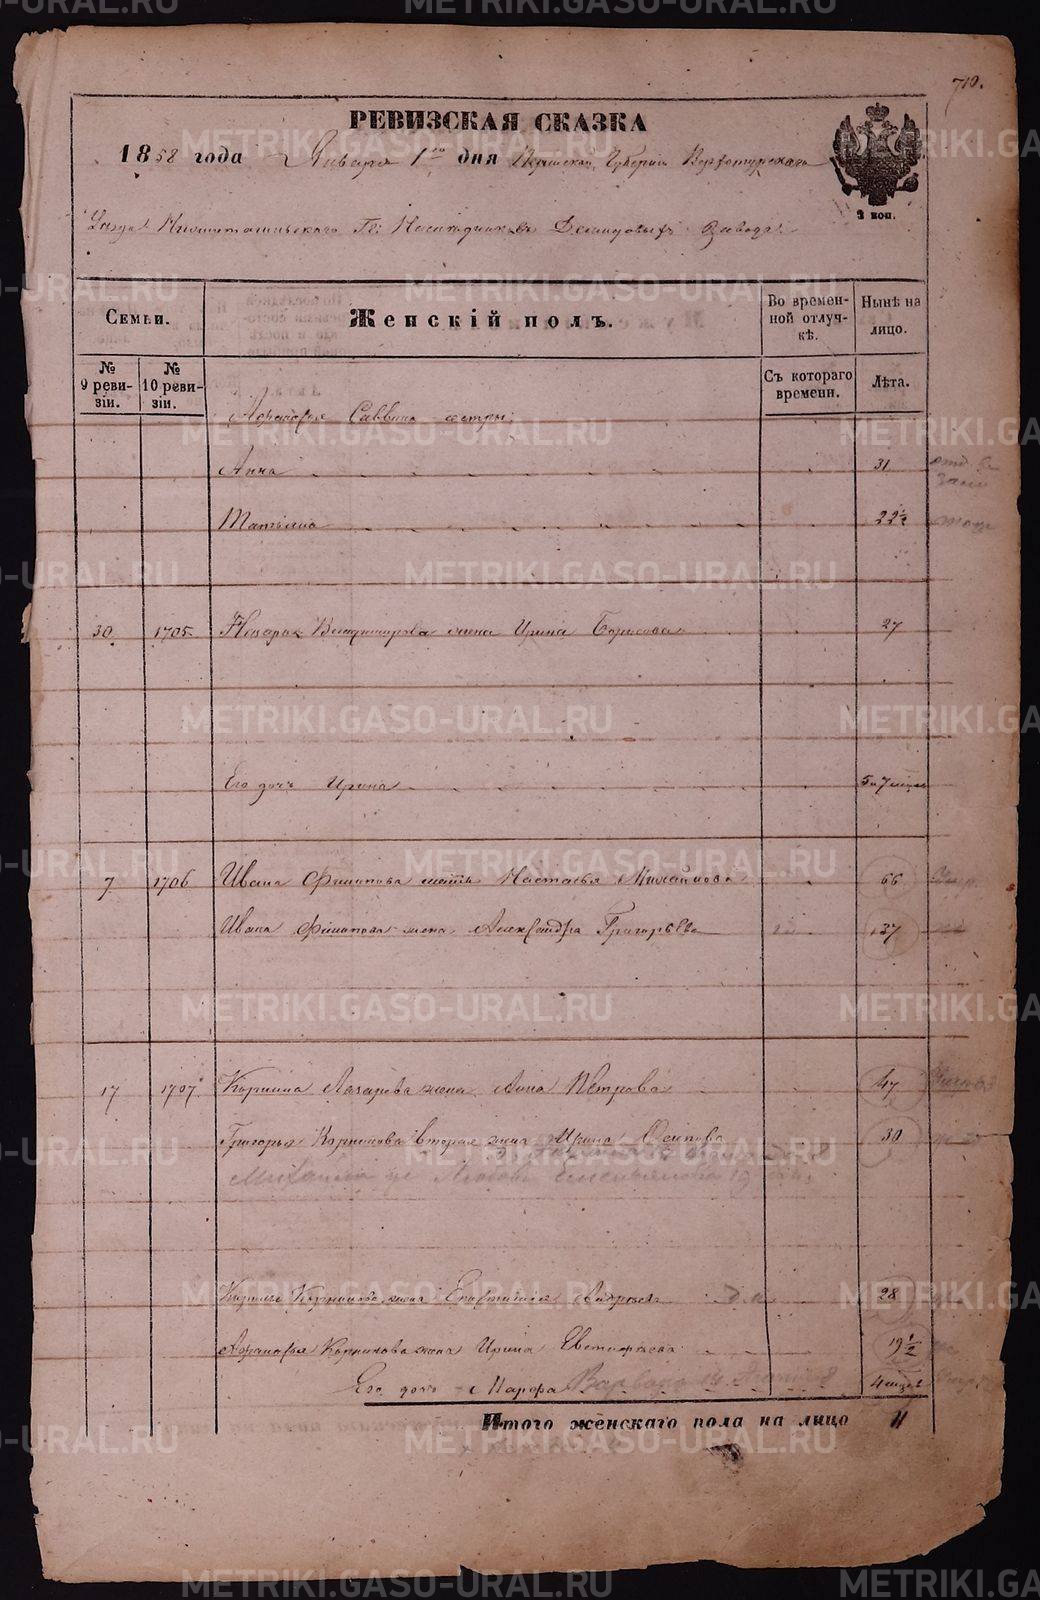 710.
РЕВИЗСКАЯ СКАЗКА
1858 года Января 1го дня Пермской Губернии Верхотурскаго
Уезда Нижнетагильскаго Гг. Наследников Демидовых завода
2 коп.
Семьи.
Женскій полъ.
Во временной отлучкѣ.
Нынѣ на лицо.
№ 9 ревизіи.
№ 10 ревизіи.
Съ котораго времени.
Лѣта.
Афанасья Саввина сестры:
Анна 31
Татьяна 22½
30 1705 Назара Владимирова жена Ирина Борисова 27
Его дочь Ирина 5 и 7 месяц
7 1706 Ивана Филипова мать Настасья Михайлова 66
Ивана Филипова жена Александра Григорьева 37
17 1707 Корнила Лазарева жена Анна Петрова 47
Григорья Корнилова вторая жена Ирина Осипова 30
Михаила Любовь Емельянова 19
Корнилова жена 28
Афанасья Корнилова жена Ирина Евстафьева 19½
Его дочь Марфа Варвара 4 месяц
Итого женскаго пола на лицо 11
METRIKI.GASO-URAL.RU